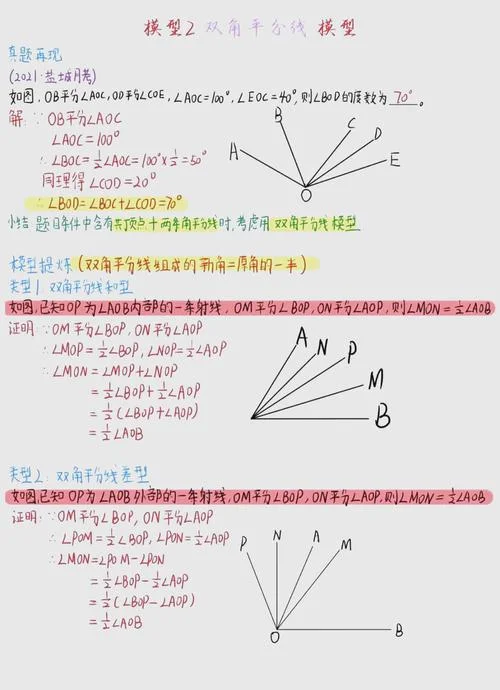 模型2 双角平分线 模型
真题再现
(2021·盐城月考)
如图,OB平分∠AOC,OD平分∠COE,∠AOC=100°,∠EOC=40°,则∠BOD的度数为 70° 。
解: ∵OB平分∠AOC
∠AOC=100°
∴∠BOC=½∠AOC=100°×½=50°
同理得∠COD=20°
∴∠BOD=∠BOC+∠COD=70°
A B C D E O
小结 题目条件中含有共顶点十两条角平分线时,考虑用 双角平分线模型
模型提炼(双角平分线组成的新角=原角的一半)
类型1. 双角平分线和型
如图,已知OP为∠AOB内部的一条射线, OM平分∠BOP,ON平分∠AOP,则∠MON=½∠AOB
证明: ∵OM平分∠BOP, ON平分∠AOP
∴∠MOP=½∠BOP, ∠NOP=½∠AOP
∴∠MON=∠MOP+∠NOP
=½∠BOP+½∠AOP
=½(∠BOP+∠AOP)
=½∠AOB
A N P M B
类型2: 双角平分线差型
如图,已知OP为∠AOB外部的一条射线,OM平分∠BOP,ON平分∠AOP,则∠MON=½∠AOB
证明: ∵OM平分∠BOP, ON平分∠AOP
∴∠POM=½∠BOP, ∠PON=½∠AOP
∴∠MON=∠POM-∠PON
=½∠BOP-½∠AOP
=½(∠BOP-∠AOP)
=½∠AOB
P N A M O B